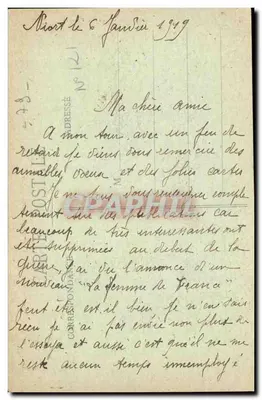 Niort le 6 Janvier 1919
Ma chère amie
A mon tour, avec un peu de
retard je viens vous remercier des
aimables vœux et des jolies cartes
vous
car
beaucoup de très intéressantes ont
été supprimées au début de la
guerre, j'ai vu l'annonce d'un
nouveau "La femme de France"
peut être est il bien je n'en sais
rien je n'ai pas envie non plus de
l'essayer et aussi c'est qu'il ne me
reste aucun temps inemployé
CARTE POSTALE
CORRESPONDANCE
ADRESSE
N° 121
-79-
CPAPHIL